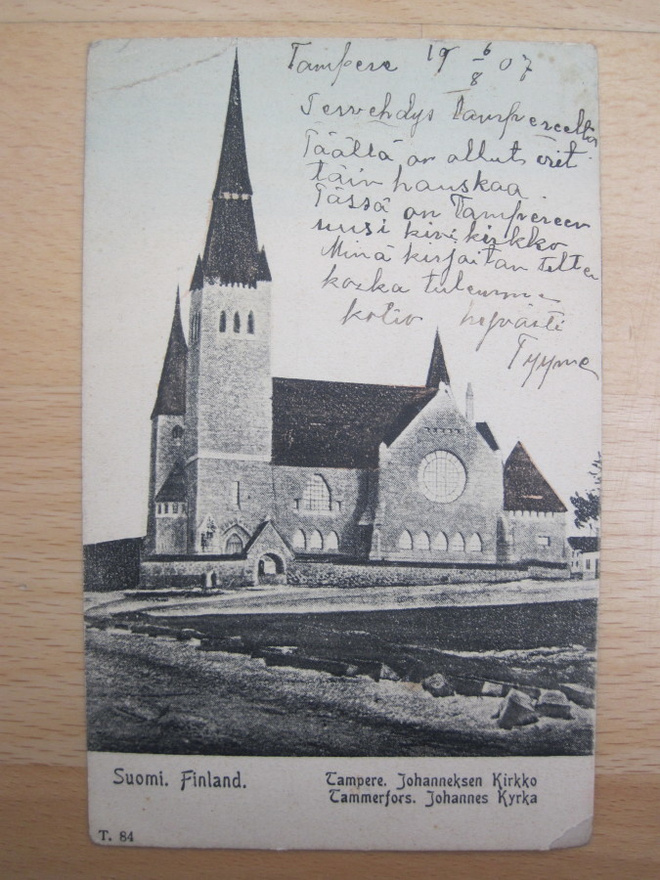 Tampere 19 6/8 07
Tervehdys Tampereelta
Täältä on ollut erit
täin hauskaa.
Tässä on Tampereen
uusi kivikirkko
Minä kirjoitan
koska tulemme
kotio hyvästi
Tyyne
Suomi. Finland.
Tampere. Johanneksen Kirkko
Tammerfors. Johannes Kyrka
T. 84